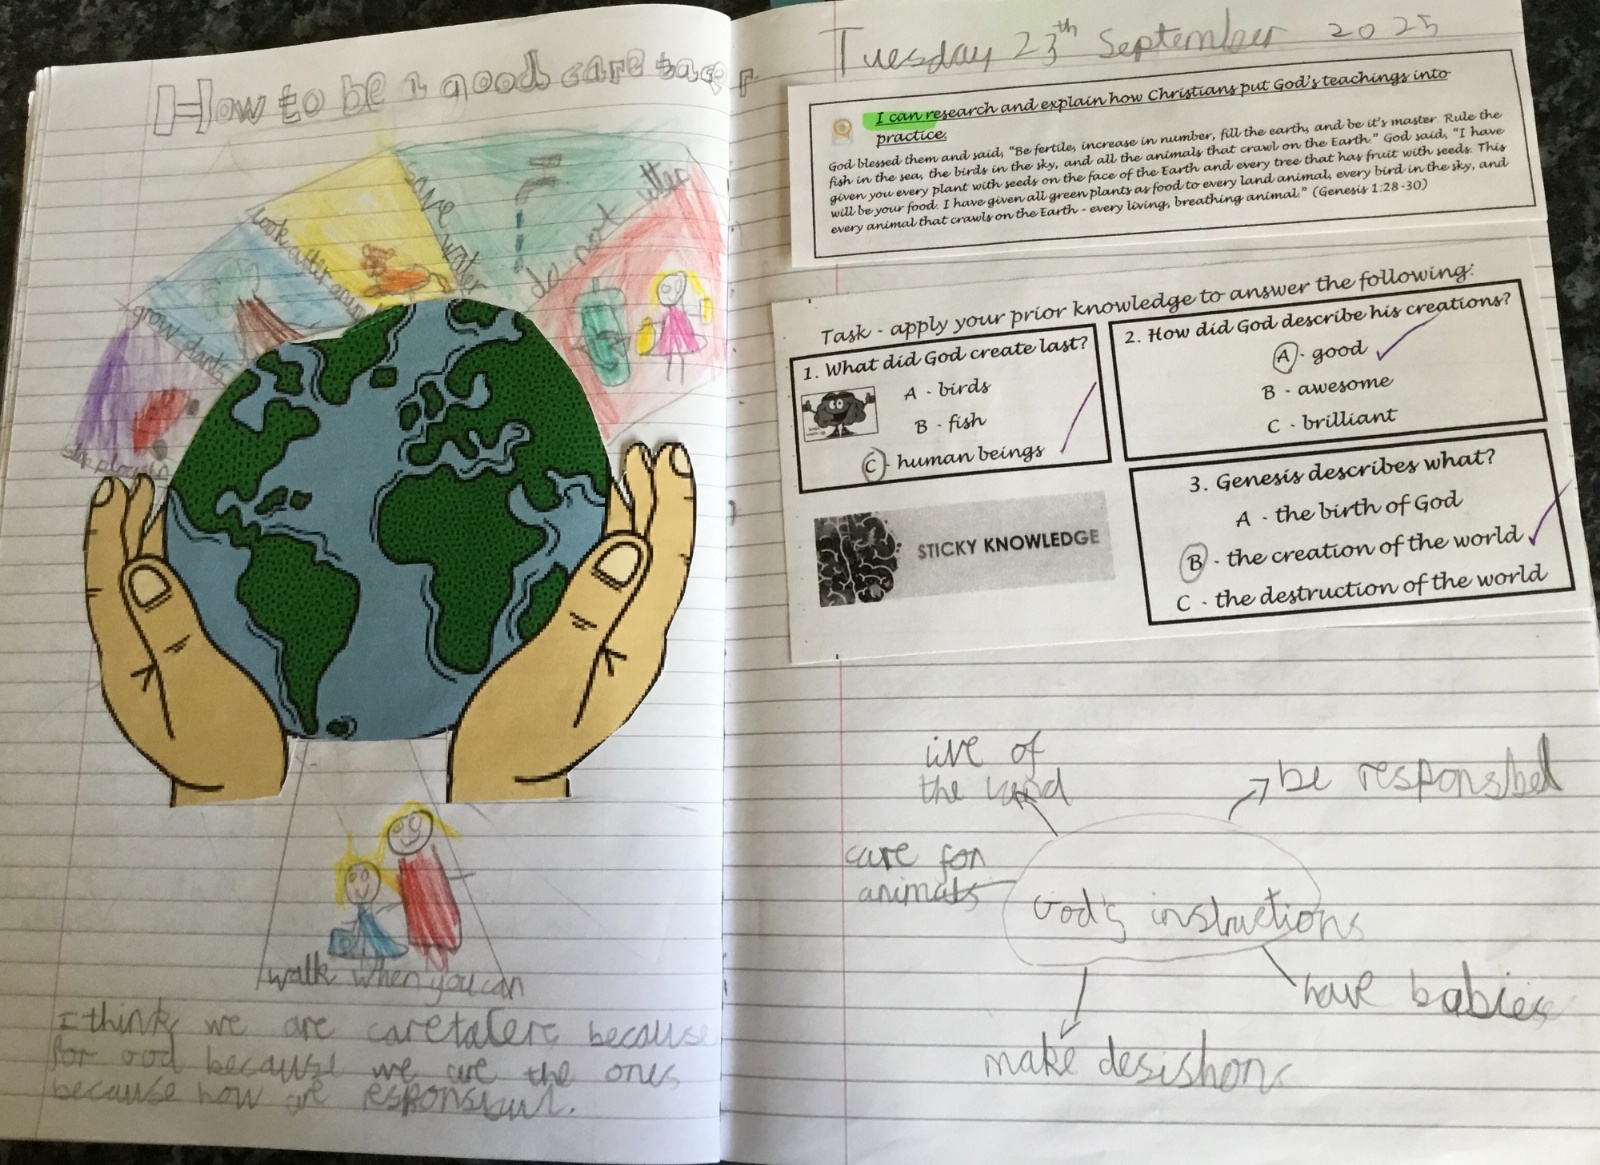 How to be a good care tacer
save water
do not litter
Look after
grow plants
walk when you can
I think we are caretalers because
for God because we are the ones
because how are
Tuesday 23th September 2025
I can research and explain how Christians put God's teachings into
practice.
God blessed them and said, "Be fertile, increase in number, fill the earth, and be it's master. Rule the
fish in the sea, the birds in the sky, and all the animals that crawl on the Earth." God said, "I have
given you every plant with seeds on the face of the Earth and every tree that has fruit with seeds. This
will be your food. I have given all green plants as food to every land animal, every bird in the sky, and
every animal that crawls on the Earth - every living, breathing animal." (Genesis 1:28-30)
Task - apply your prior knowledge to answer the following:
1. What did God create last?
A - birds
B - fish
C - human beings
2. How did God describe his creations?
A - good
B - awesome
C - brilliant
3. Genesis describes what?
A - the birth of God
B - the creation of the world
C - the destruction of the world
STICKY KNOWLEDGE
live of
the land
be responsbel
care for
animals
God's instructions
have babies
make desishons